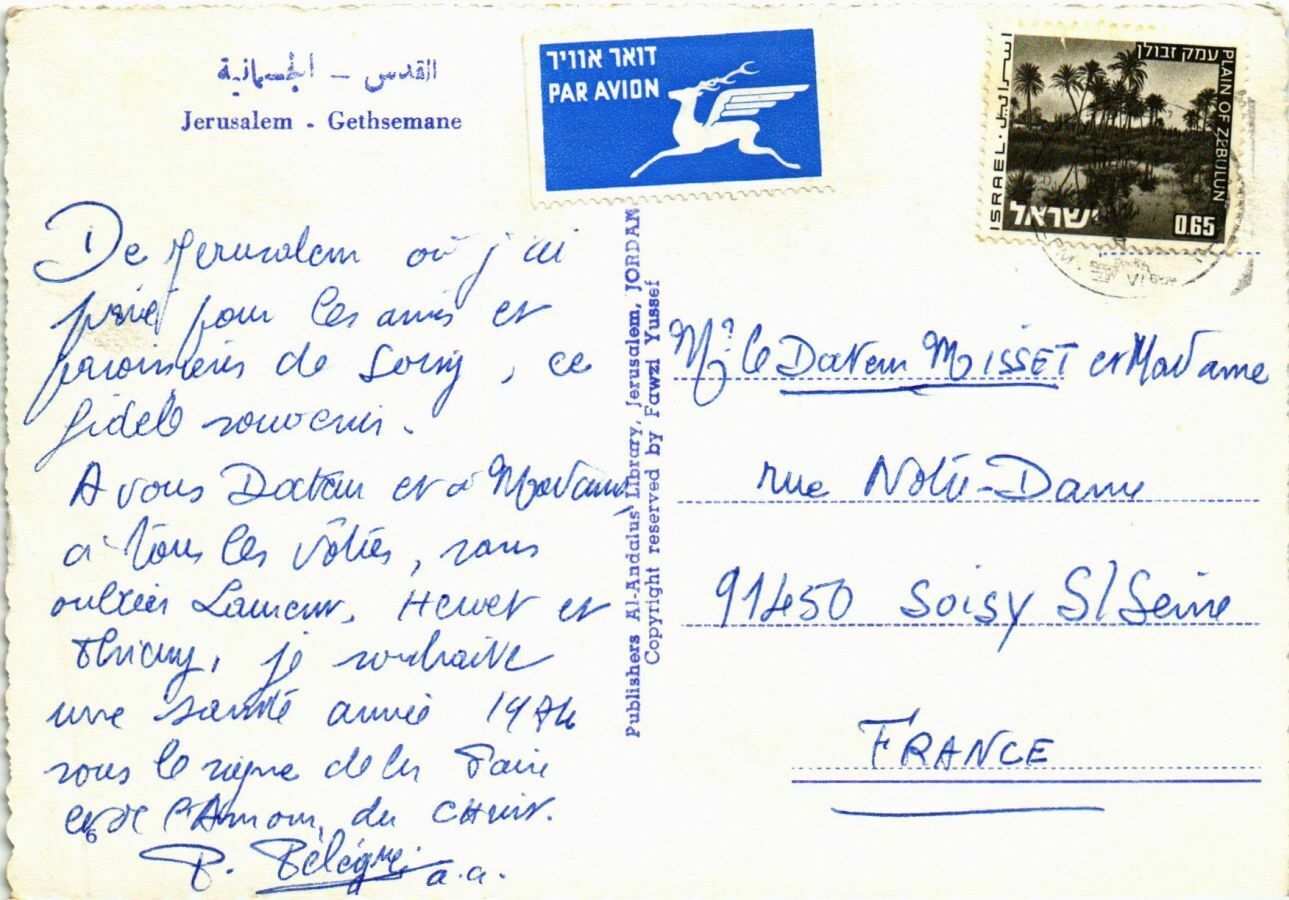 القدس - الجسمانية
Jerusalem - Gethsemane
דואר אוויר
PAR AVION
עמק זבולן
PLAIN OF ZEBULUN
اسرائيل
ISRAEL
ישראל
0.65
De Jerusalem où j'ai
prié pour les amis et
paroissiens de Soisy, ce
fidèle souvenir.
A vous Docteur et à Madame
à tous les vôtres, sans
oublier Laurent, Hervet et
Thierry, je souhaite
une sainte année 1974
sous le signe de la Paix
et de l'Amour du CHRIST.
P. a.a.
Publishers Al-Andalus Library, Jerusalem, JORDAN
Copyright reserved by Fawzi Yussef
Mr le Docteur MOISSET et Madame
rue Notre-Dame
91450 Soisy S/Seine
FRANCE